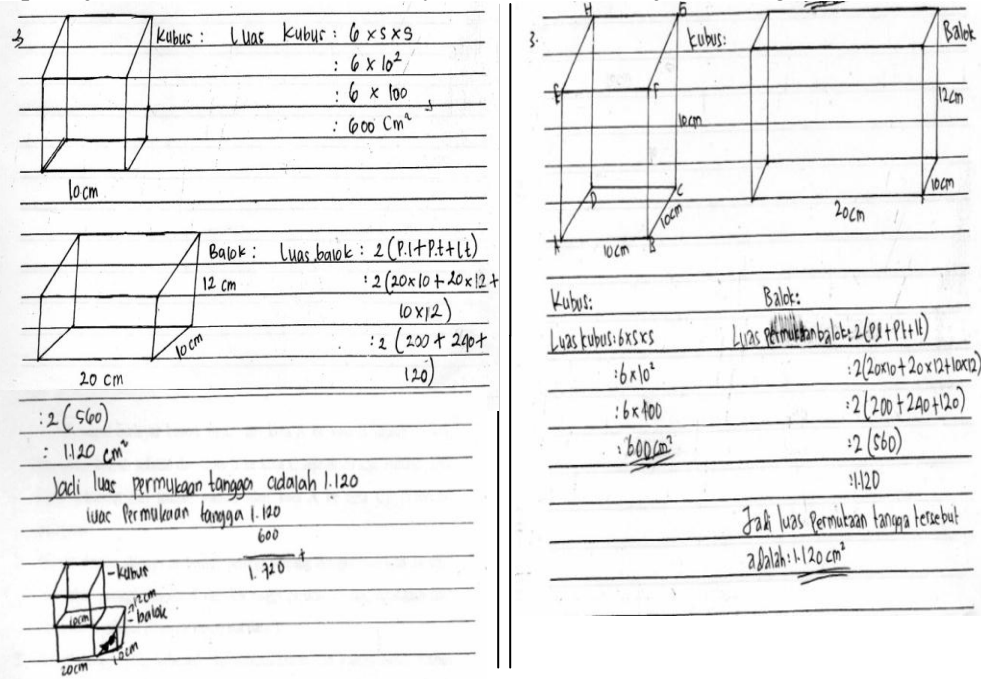 3.
Kubus : Luas Kubus : 6 x s x s
: 6 x 10²
: 6 x 100
: 600 Cm²
10 cm
Balok : Luas balok : 2 (P.l + P.t + l.t)
12 cm
: 2 (20x10 + 20x12 +
10x12)
: 2 (200 + 240 +
120)
10cm
20 cm
: 2 (560)
: 1.120 cm²
Jadi luas permukaan tangga adalah 1.120
luas Permukaan tangga 1.120
600
+
1.720
- kubus
12cm
- balok
10cm
20cm
10cm
3.
H
G
Kubus:
Balok
E
F
10cm
12cm
D
C
10cm
10cm
A
10cm
B
20cm
Kubus:
Luas kubus : 6xsxs
: 6x10²
: 6x100
: 600cm²
Balok:
Luas permukaan balok : 2(Pl+Pt+lt)
: 2(20x10+20x12+10x12)
: 2(200+240+120)
: 2(560)
: 1.120
Jadi luas permukaan tangga tersebut
adalah : 1.120 cm²